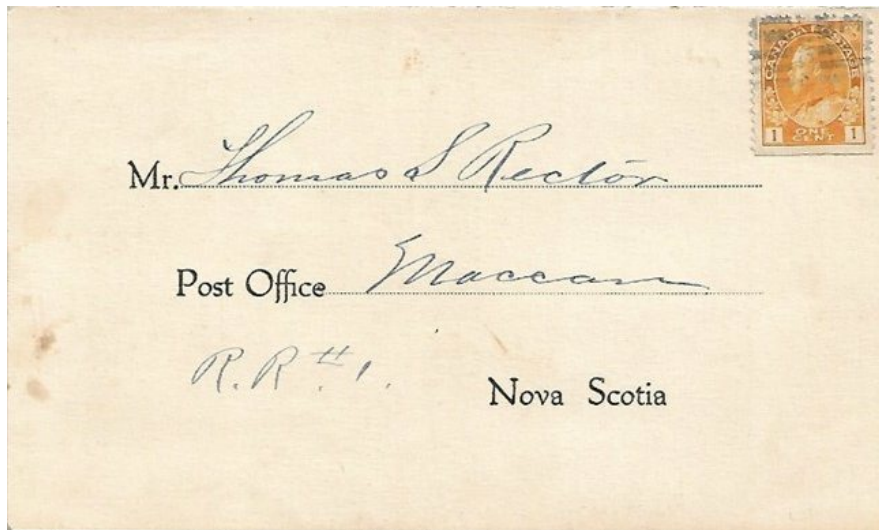 CANADA POSTAGE
1 ONE CENT 1
Mr. Thomas S Rector
Post Office Maccan
R. R #1.
Nova Scotia